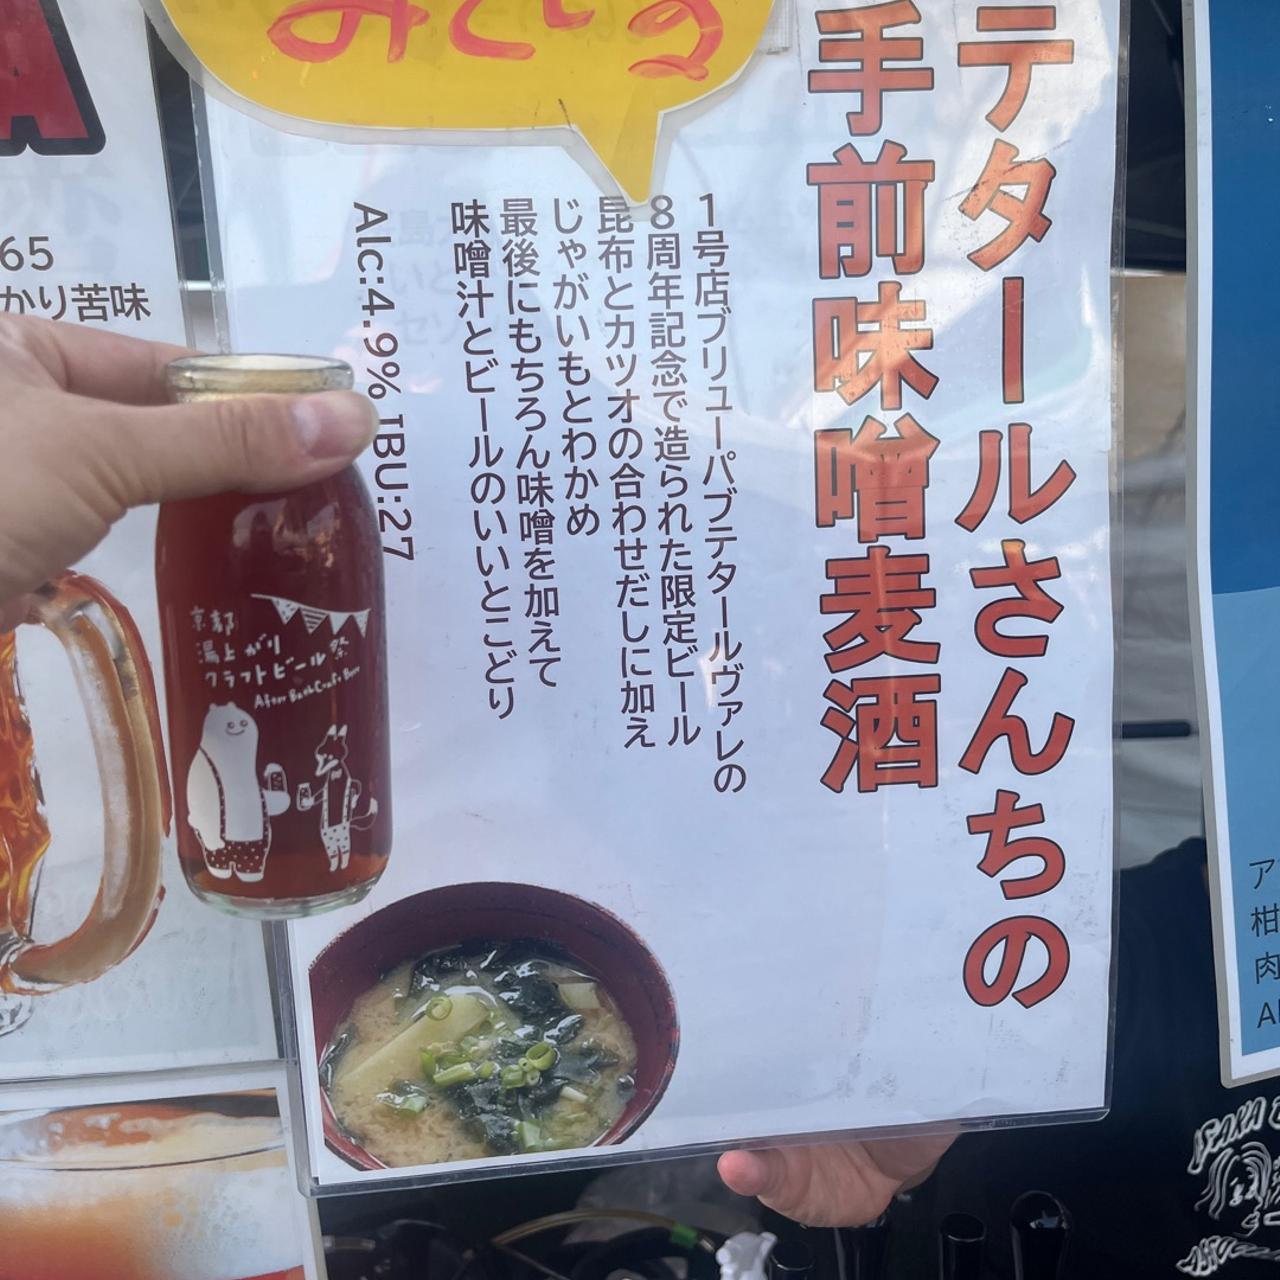 みそしる
テタールさんちの
手前味噌麦酒
1号店ブリューパブテタールヴァレの
8周年記念で造られた限定ビール
昆布とカツオの合わせだしに加え
じゃがいもとわかめ
最後にもちろん味噌を加えて
味噌汁とビールのいいとこどり
Alc:4.9% IBU:27
65
かり苦味
京都
湯上がり
クラフトビール祭
After Bath Craft Beer
ア
柑
肉